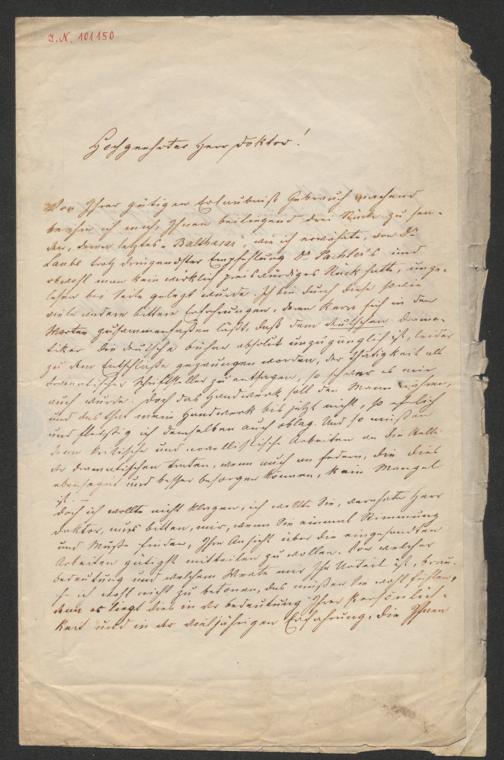 J.N. 101150
Hochgeehrter Herr Doktor!
Von Ihrer gütigen Erlaubniß Gebrauch machend
beehre ich mich, Ihnen beiliegend drei Stücke zu sen-
den, deren letztes „Balthasar“, wie ich erwähnte, von Dr
Laube trotz dringendster Empfehlung Dr Pachler's und
obwohl man kein wirklich preiswürdiges Stück hatte, unge-
lesen bei Seite gelegt wurde. Ich bin durch diese sowie
viele andere bittere Erfahrungen, deren Kern sich in den
Worten zusammenfaßen läßt, daß dem deutschen Drama-
tiker die deutsche Bühne absolut unzugänglich ist, leider
zu dem Entschluße gezwungen worden, der Thätigkeit als
dramatischer Schriftsteller zu entsagen, so schwer es mir
auch wurde. Doch das Handwerk soll den Mann nähren,
und das that mein Handwerk bis jetzt nicht, so ehrlich
und fleißig ich demselben auch oblag. Und so mußten
denn kritische und novellistische Arbeiten an die Stelle
der dramatischen treten, wenn auch an Federn, die dies
ebensogut und besser besorgen können, kein Mangel
ist. –
Doch ich wollte nicht klagen, ich wollte Sie, verehrter Herr
Doktor, nur bitten, mir, wenn Sie einmal Stimmung
und Muße finden, Ihre Ansicht über die eingesandten
Arbeiten gütigst mitteilen zu wollen. Von welcher
Bedeutung und welchem Werte mir Ihr Urteil ist, brau-
che ich wohl nicht zu betonen, das müßen Sie wohl fühlen,
denn es liegt dies in der Bedeutung Ihrer Persönlich-
keit und in der vieljährigen Erfahrung, die Ihnen